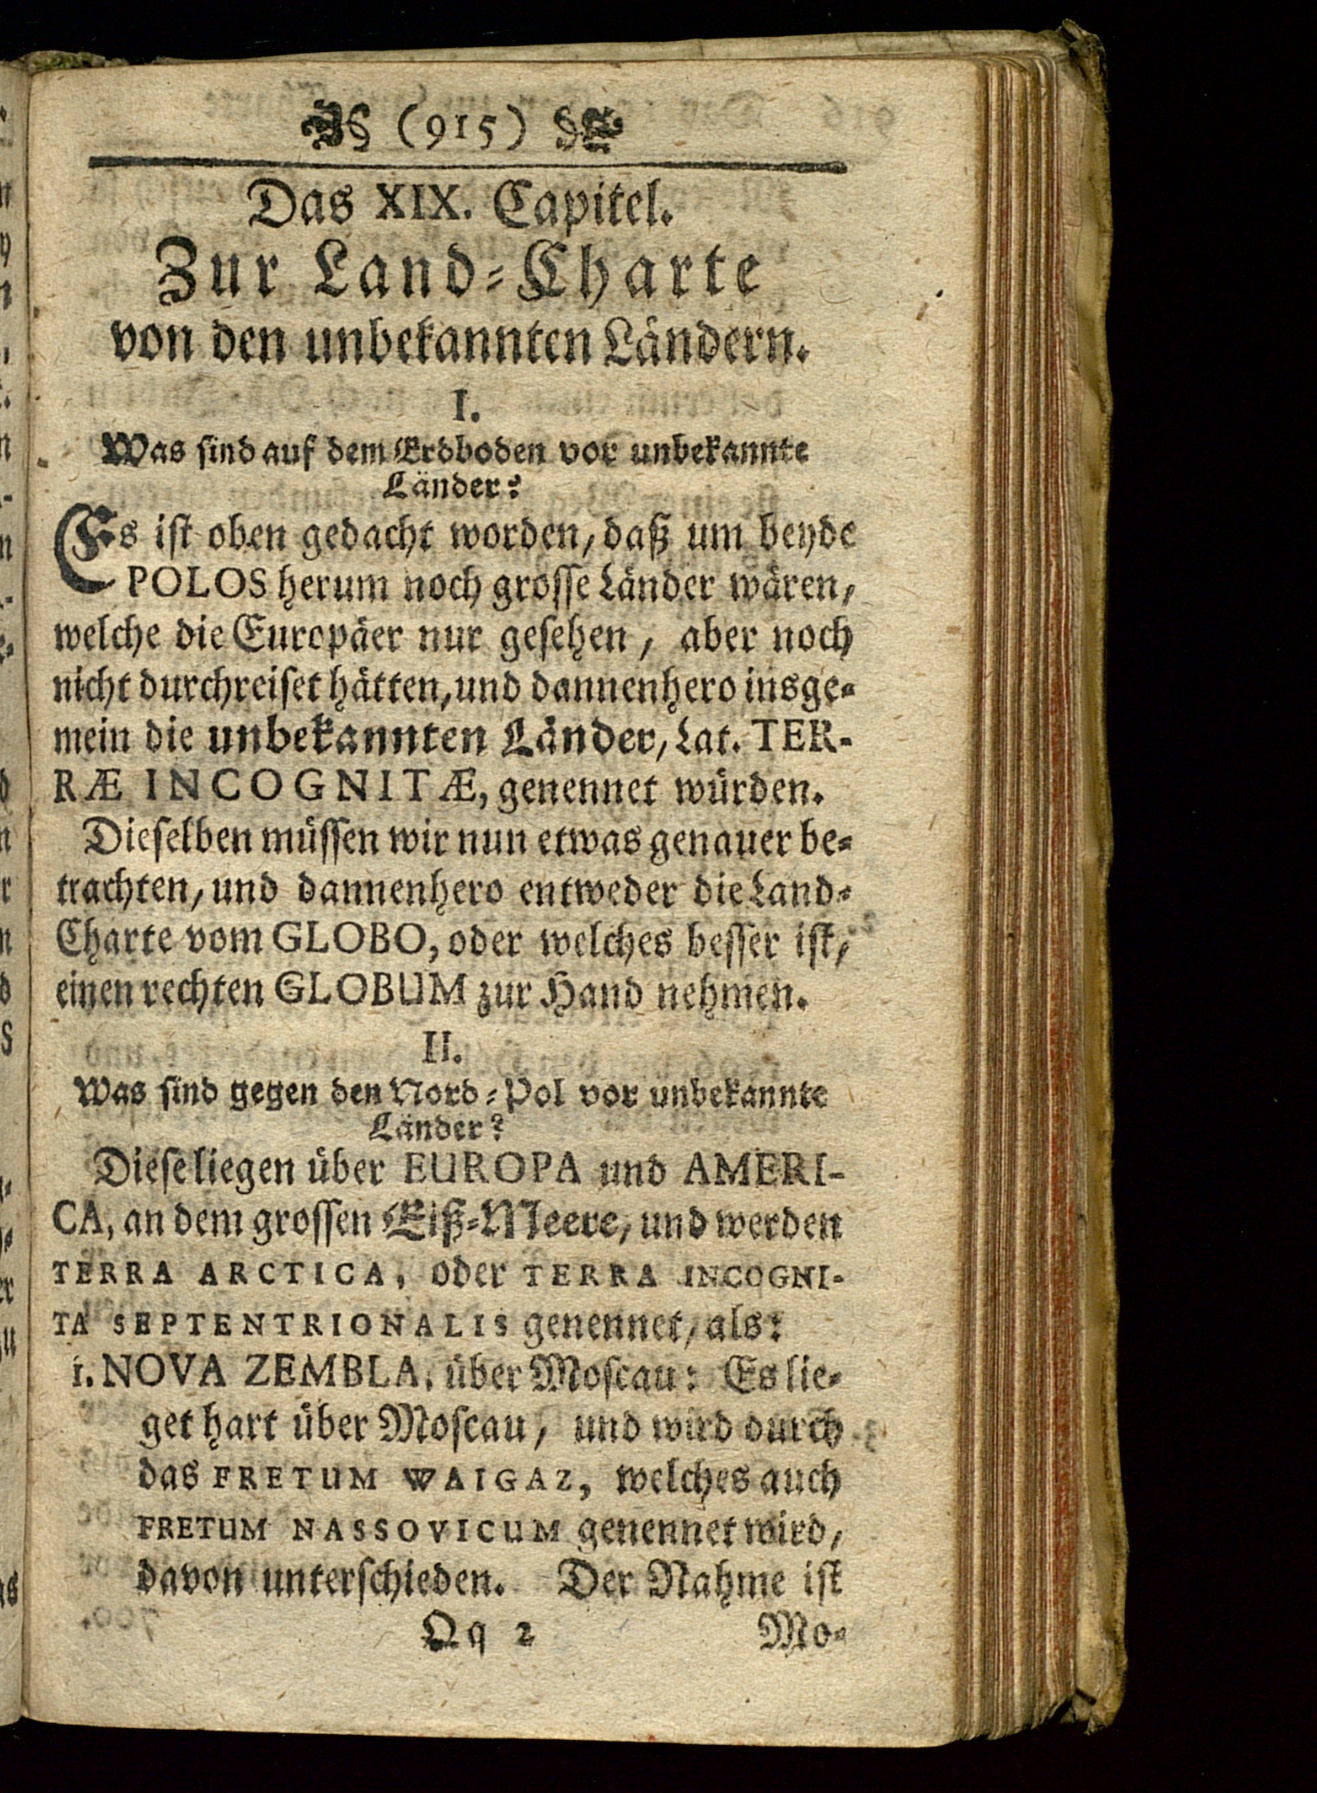 (915)
Das XIX. Capitel.
Zur Land-Charte
von den unbekannten Ländern.
I.
Was sind auf dem Erdboden vor unbekannte
Länder?
Es ist oben gedacht worden, daß um beyde
POLOS herum noch grosse Länder wären,
welche die Europäer nur gesehen, aber noch
nicht durchreiset hätten, und dannenhero insge-
mein die unbekannten Länder, Lat. TER-
RÆ INCOGNITÆ, genennet würden.
Dieselben müssen wir nun etwas genauer be-
trachten, und dannenhero entweder die Land-
Charte vom GLOBO, oder welches besser ist,
einen rechten GLOBUM zur Hand nehmen.
II.
Was sind gegen den Nord-Pol vor unbekannte
Länder?
Diese liegen über EUROPA und AMERI-
CA, an dem grossen Eiß-Meere, und werden
TERRA ARCTICA, oder TERRA INCOGNI-
TA SEPTENTRIONALIS genennet, als:
1. NOVA ZEMBLA, über Moscau: Es lie-
get hart über Moscau, und wird durch
das FRETUM WAIGAZ, welches auch
FRETUM NASSOVICUM genennet wird,
davon unterschieden. Der Nahme ist
Qq 2 Mo-